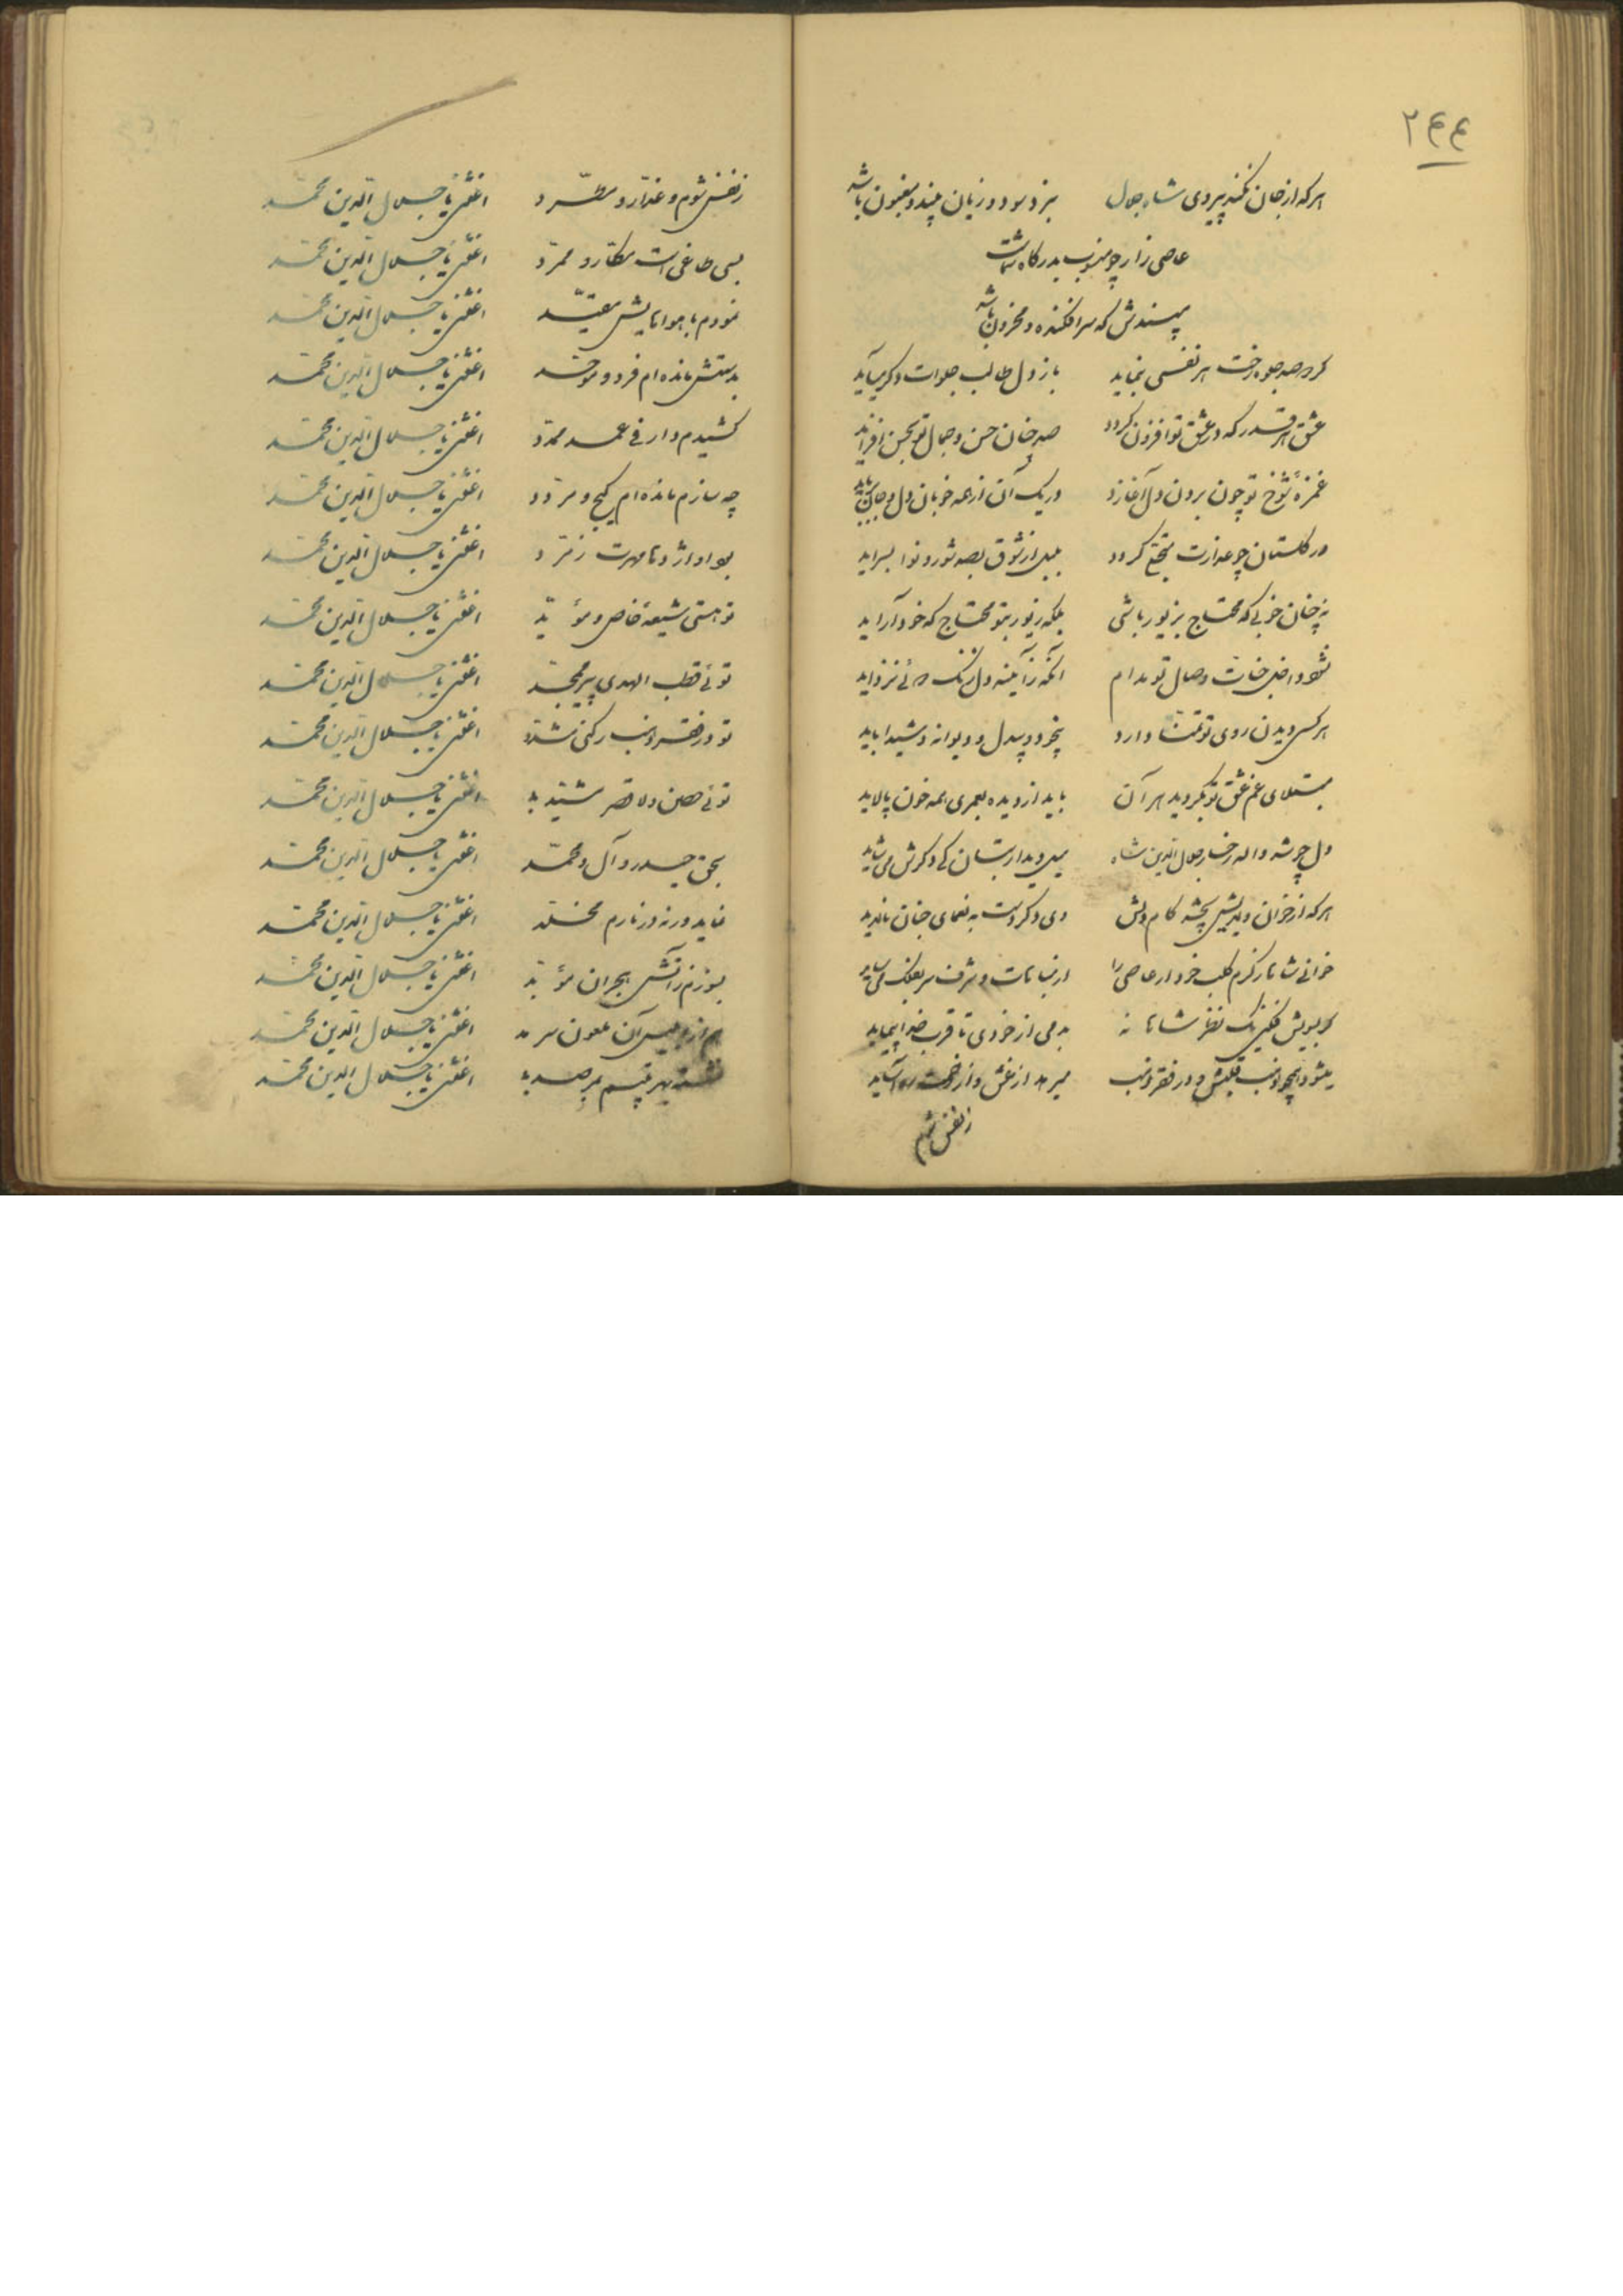 ۲۴۴
هرکه از جان نکند پیروی شاه جلال
نبرد سود و زیان بیند و مغبون باشد
عاصی زار چو منسوب بدرکاه شماست
مپسندش که سرافکنده و محزون باشد
کر دو صد جلوه رخت هر نفسی بنماید
باز دل طالب جلوات دکر میآید
عشق هر قدر که در عشق تو افزون کردد
صد چنان حسن و جمال تو بحسن افزاید
غمزهٔ شوخ تو چون بردن دل آغازد
در یک آن از همه خوبان دل و جان برباید
در کلستان چو عذارت بتجلی کردد
بلبل از شوق بصد شور و نوا بسراید
نه چنان خوبی که محتاج بزیور باشی
بلکه زیور بتو محتاج که خود آراید
نشود داخل جنات وصال تو مدام
آنکه ز آیینه دل زنک نزداید
هرکس دیدن روی تو تمنا دارد
بیخود و بیدل و دیوانه و شیدا باید
مبتلای غم عشق تو بکردید هر آن
باید از دیده بعمری همه خون پالاید
دل چو شد واله رخسار جلال الدین شاه
میل دیدار بتان کی دکرش می شاید
هرکه از خوان وی بچشد کام دلش
وی دکر دست به نعمای جنان نالاید
خوانی شاها ز کرم کلب خود ار عاصی را
از مباهات و شرف سر بفلک می ساید
کر بسویش فکنی یک نظر شاهانه
بدمی از خودی تا قرب خدا پیماید
میرهد از غش و از زحمت ره آساید
ز نفس شوم
ز نفس شوم و غدار و مطرد
اغثنی یا جلال الدین محمد
بسی طاغی است مکار و ممرد
اغثنی یا جلال الدین محمد
نمودم با هواهایش مقید
اغثنی یا جلال الدین محمد
بدستش مانده ام فرد و موحد
اغثنی یا جلال الدین محمد
کشیدم دار فی عمد ممدد
اغثنی یا جلال الدین محمد
چه سازم مانده ام کیج و مردد
اغثنی یا جلال الدین محمد
اغثنی یا جلال الدین محمد
تو هستی شیعهٔ خاص و مؤید
اغثنی یا جلال الدین محمد
توئی قطب الهدی پیر ممجد
اغثنی یا جلال الدین محمد
تو در فقر ذهب رکنی مشدد
اغثنی یا جلال الدین محمد
توئی حصن ولا قصر مشید
اغثنی یا جلال الدین محمد
بحق حیدر و آل محمد
اغثنی یا جلال الدین محمد
نماید ورنه در نارم مخلد
اغثنی یا جلال الدین محمد
بسوزم ز آتش هجران مؤبد
اغثنی یا جلال الدین محمد
هم از ابلیس آن ملعون سرمد
اغثنی یا جلال الدین محمد
نشسته بهر قتلم بمرصد
اغثنی یا جلال الدین محمد